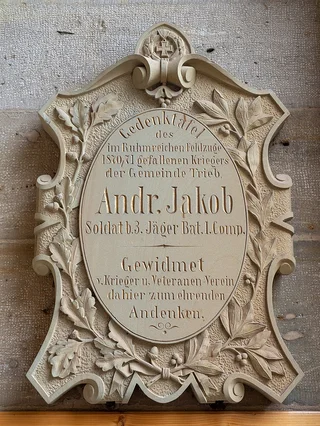 Gedenktafel
des
im Ruhmreichen Feldzuge
1870/71 gefallenen Kriegers
der Gemeinde Trieb.
Andr. Jakob
Soldat b. 3. Jäger Bat. 1. Comp.
Gewidmet
v. Krieger u. Veteranen-Verein
dahier zum ehrenden
Andenken.